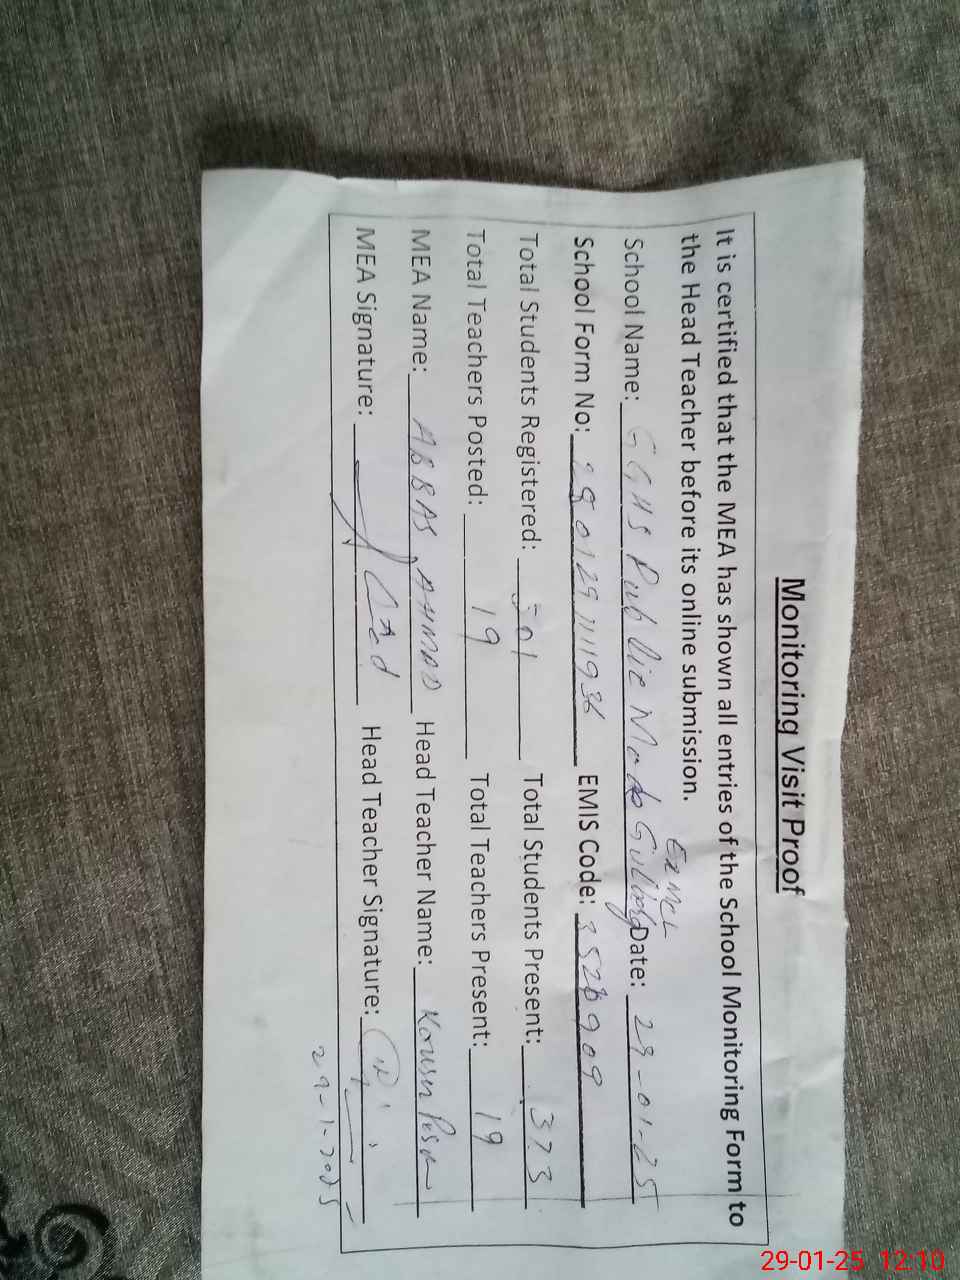 Monitoring Visit Proof
It is certified that the MEA has shown all entries of the School Monitoring Form to
the Head Teacher before its online submission.
Ex MCL
School Name: GGHS Public Mode Gulberg Date: 29-01-25
School Form No: 2801291111936 EMIS Code: 35209
Total Students Registered: 501 Total Students Present: 373
Total Teachers Posted: 19 Total Teachers Present: 19
MEA Name: ABBAS AHMAD Head Teacher Name: Kousar
MEA Signature: Head Teacher Signature:
29-1-2025
29-01-25 12:10